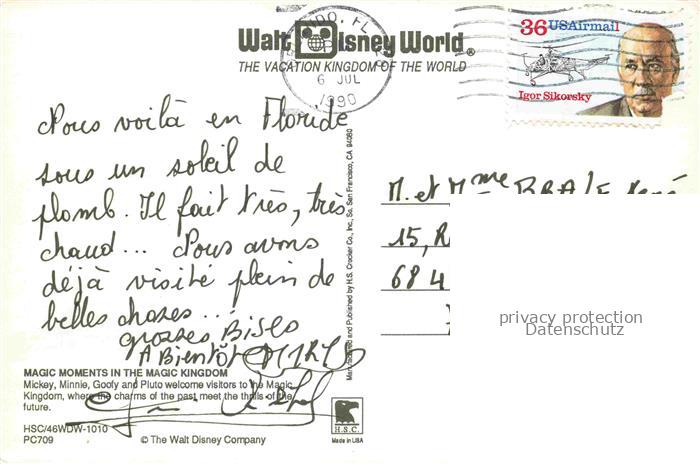 Walt Disney World®
THE VACATION KINGDOM OF THE WORLD
ORLANDO, FL
6 JUL
1990
36 USAirmail
Igor Sikorsky
Nous voilà en Floride
sous un soleil de
plomb. Il fait très, très
chaud... Nous avons
déjà visité plein de
belles choses...
grosses Bises
A Bientôt
M. et Mme
15, R
68 4
privacy protection
Datenschutz
Manufactured and Published by H.S. Crocker Co., Inc., So. San Francisco, CA 94080
MAGIC MOMENTS IN THE MAGIC KINGDOM
Mickey, Minnie, Goofy and Pluto welcome visitors to the Magic
Kingdom, where the charms of the past meet the thrills of the
future.
HSC/46WDW-1010
PC709
© The Walt Disney Company
H.S.C.
Made in USA